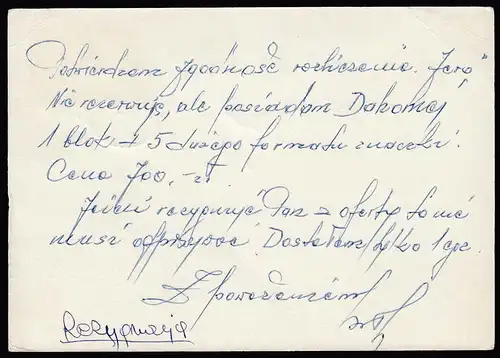 Potwierdzam zgodność rozliczenia.
Nie rezerwuję, ale posiadam Dahomej
1 blok + 5 dużego formatu znaczki.
Cena 700,- zł
Jeżeli rezygnuje Pan z oferty to nie
musi odpisywać Dostałem tylko 1 egz.
Z poważaniem
Rezygnacja